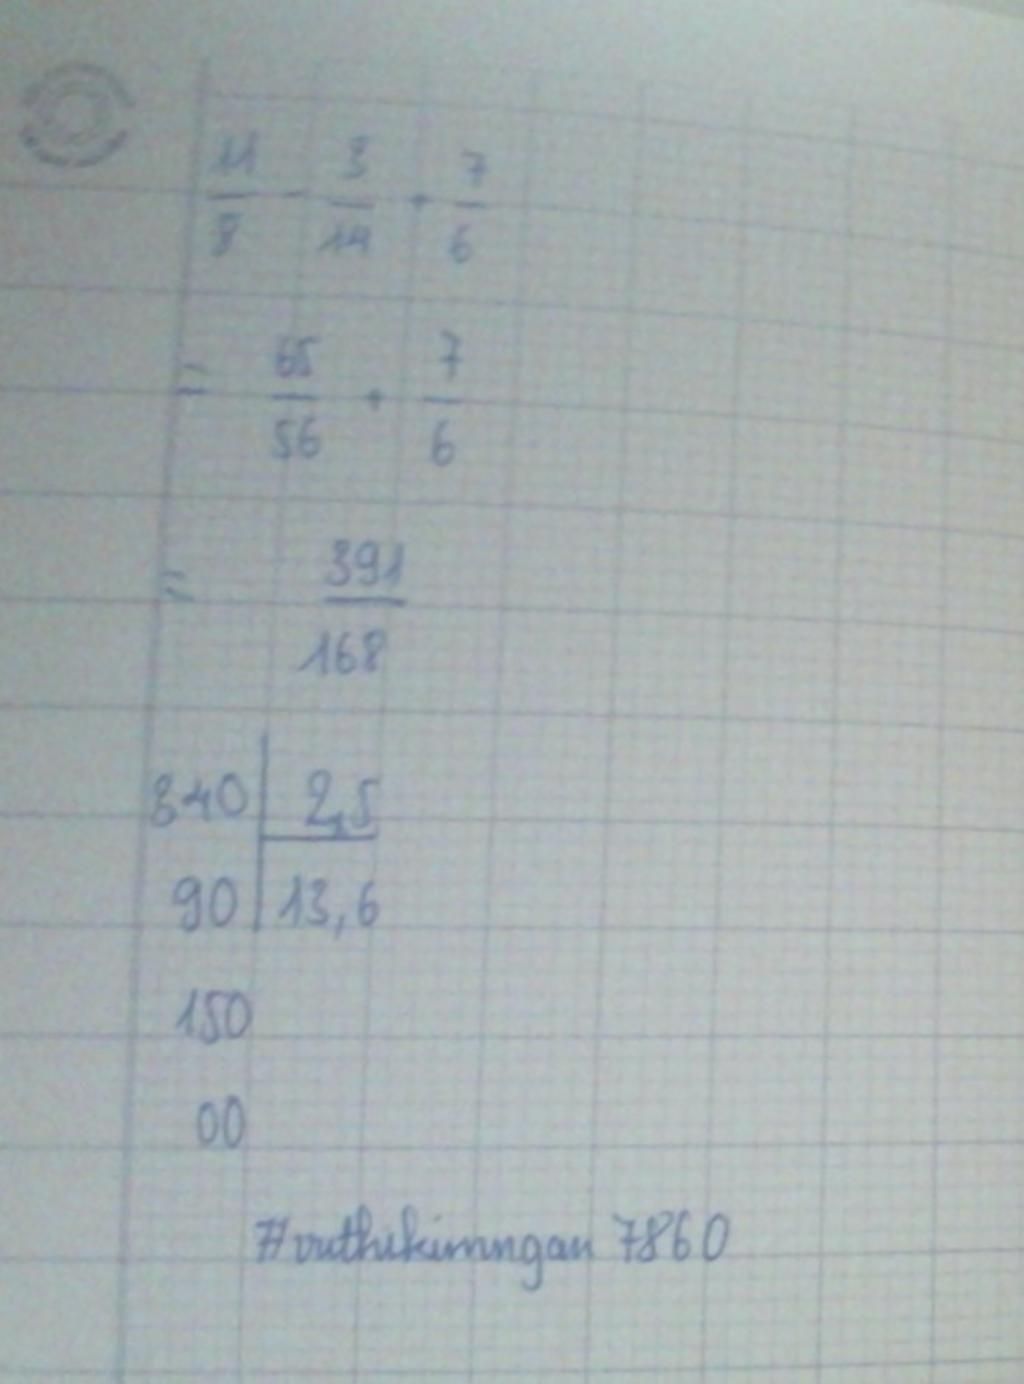 11/8 - 3/14 + 7/6
= 65/56 + 7/6
= 391/168
340 | 2,5
90 | 13,6
150
00
#vuthikimngan 7860